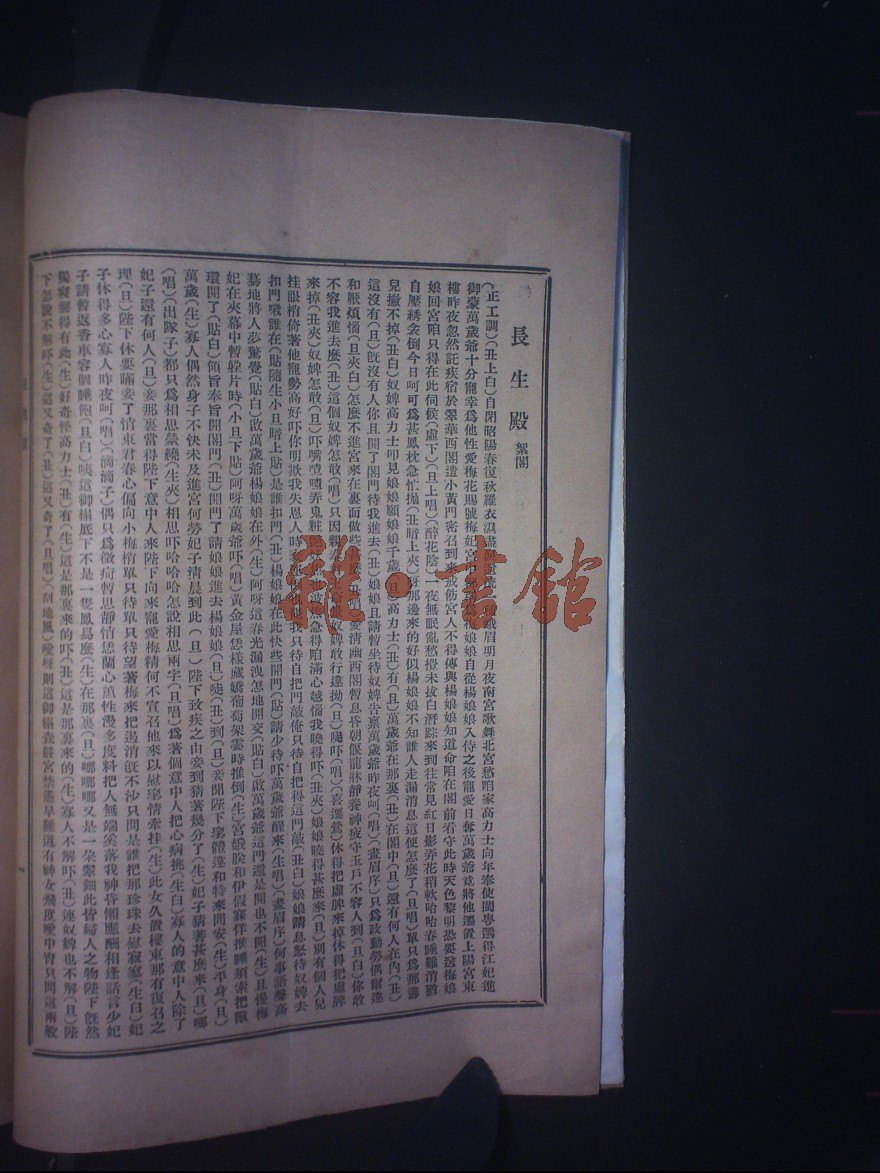 長生殿 絮閣
(正工調)(丑上白)自閉昭陽春復秋羅衣濕盡淚還流一種蛾眉明月夜南宮歌舞北宮愁咱家高力士向年奉使閩粵選得江妃進
御蒙萬歲爺十分寵幸為他性愛梅花賜號梅妃宮中都稱為梅娘娘自從楊娘娘入侍之後寵愛日奪萬歲爺竟將他遷置上陽宮東
樓昨夜忽然託疾宿於翠華西閣遣小黃門密召到來戒飭宮人不得傳與楊娘娘知道命咱在閣前看守此時天色黎明恐要送梅娘
娘回宮咱只得在此伺候(虛下)(旦上唱)(醉花陰)一夜無眠亂愁攪未拔白潛踪來到往常見紅日影弄花梢軟哈哈春睡難消猶
自壓綉衾倒今日呵可為甚鳳枕急忙拋(丑暗上夾)呀那邊來的好似楊娘娘不知誰人走漏消息這便怎麼了(旦唱)單只為那籌
兒撇不掉(丑白)奴婢高力士叩見娘娘願娘娘千歲(旦)高力士(丑)有(旦)萬歲爺在那裏(丑)在閣中(旦)還有何人在內(丑)
這沒有(旦)既沒有人你且開了閣門待我進去(丑)娘娘且請暫坐待奴婢告稟萬歲爺昨夜呵(唱)(畫眉序)只為政勤勞偶爾違
和厭煩惱(旦夾白)怎麼不進宮來在裏面做些甚麼(丑唱)愛清幽西閣暫息昏朝偃龍牀靜養神疲守玉戶不容人到(旦白)你敢
不容我進去麼(丑)這個奴婢怎敢(唱)只因親奉君王命奴婢敢行違拗(旦)哫吓(唱)(喜遷鶯)休得把虛脾
來掉(丑夾)奴婢怎敢(旦)吓嘴喳喳弄鬼粧艷焦也波焦急得咱滿心越惱我曉得吓(丑夾)娘娘曉得甚麼來(旦)別有個人兒
挂眼梢倚著他寵勢高好吓你明欺我失恩人時我只待自把門敲俺只待自把得這門敲(丑白)娘娘請息怒待奴婢去
扣門哦誰在(貼隨生小旦暗上貼)是誰扣門(丑)楊娘娘在此快些開門(貼)請少待吓萬歲爺醒來(生唱)(畫眉序)何事語聲高
驀地將人夢驚覺(貼白)啟萬歲爺楊娘娘在外(生)阿呀這春光漏洩怎地開交(貼白)啟萬歲爺這門還是開也不開(生)且慢梅
妃在夾幕中暫躲片時(小旦下貼)阿呀萬歲爺吓(唱)黃金屋恁樣藏嬌葡萄架霎時推倒(生)宮娥朕和伊假寐佯推睡須索把獸
環開了(貼白)領旨奉旨開閣門(丑)開門了請娘娘進去楊娘娘(旦)哫(丑)到(旦)妾聞陛下聖體違和特來問安(生)平身(旦)
萬歲(生)寡人偶然身子不快未及進宮何勞妃子清晨到此(旦)陛下致疾之由妾到猜著幾分了(生)妃子猜著甚麼來(旦)哪
(唱)(出隊子)都只為相思縈繞(生夾)相思吓哈哈哈怎說相思兩字(旦唱)為著個意中人把心病挑(生白)寡人的意中人除了
妃子還有何人(旦)妾那裏當得陛下意中人來陛下向來寵愛梅精何不宣召他來以慰聖情牽挂(生)此女久置樓東那有復召之
理(旦)陛下休要瞞妾了情東君春心偏向小梅梢單只待單只待望著梅來把渴消既不沙只問是誰把那珍珠去慰寂寥(生白)妃
子休得多心寡人昨夜呵(唱)(滴滴子)偶只為微疴暫思靜悄恁蘭心蕙性漫多度料把人無端奚落我神昏懶應酬相逢話言少妃
子請暫返香車容個睡飽(旦白)咦這御榻底下不是一隻鳳舄麼(生)在那裏(旦)哪哪哪又是一朵翠鈿此皆婦人之物陛下既然
獨寢關得有此(生)好奇怪高力士(丑)有(生)這是那裏來的吓(丑)這是那裏來的(生)寡人不解吓(丑)連奴婢也不解(旦)陛
下怎說不解吓(生)這又奇了(丑)這又奇了(旦唱)(刮地風)噯呀則這御榻森嚴宮禁遙早難道有神女飛度愛中宵只問這兩般
雜·書館